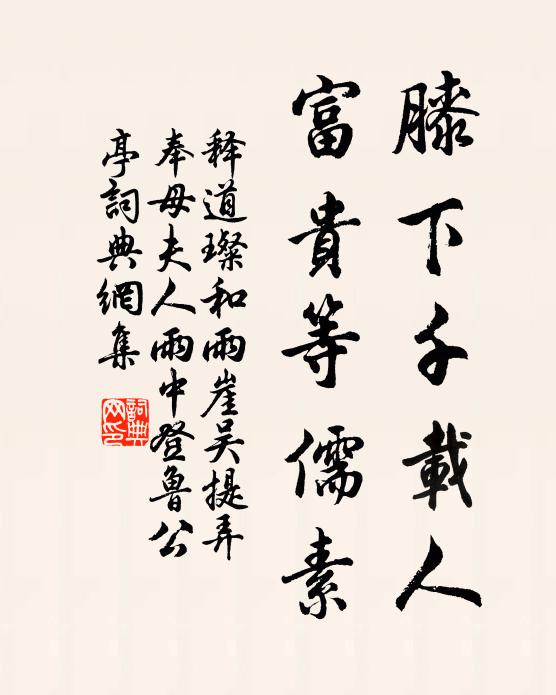 膝下千載人
富貴等儒素
释道璨和雨崖吴提弄
奉母夫人雨中登魯公
亭詞典網集
詞典
网印